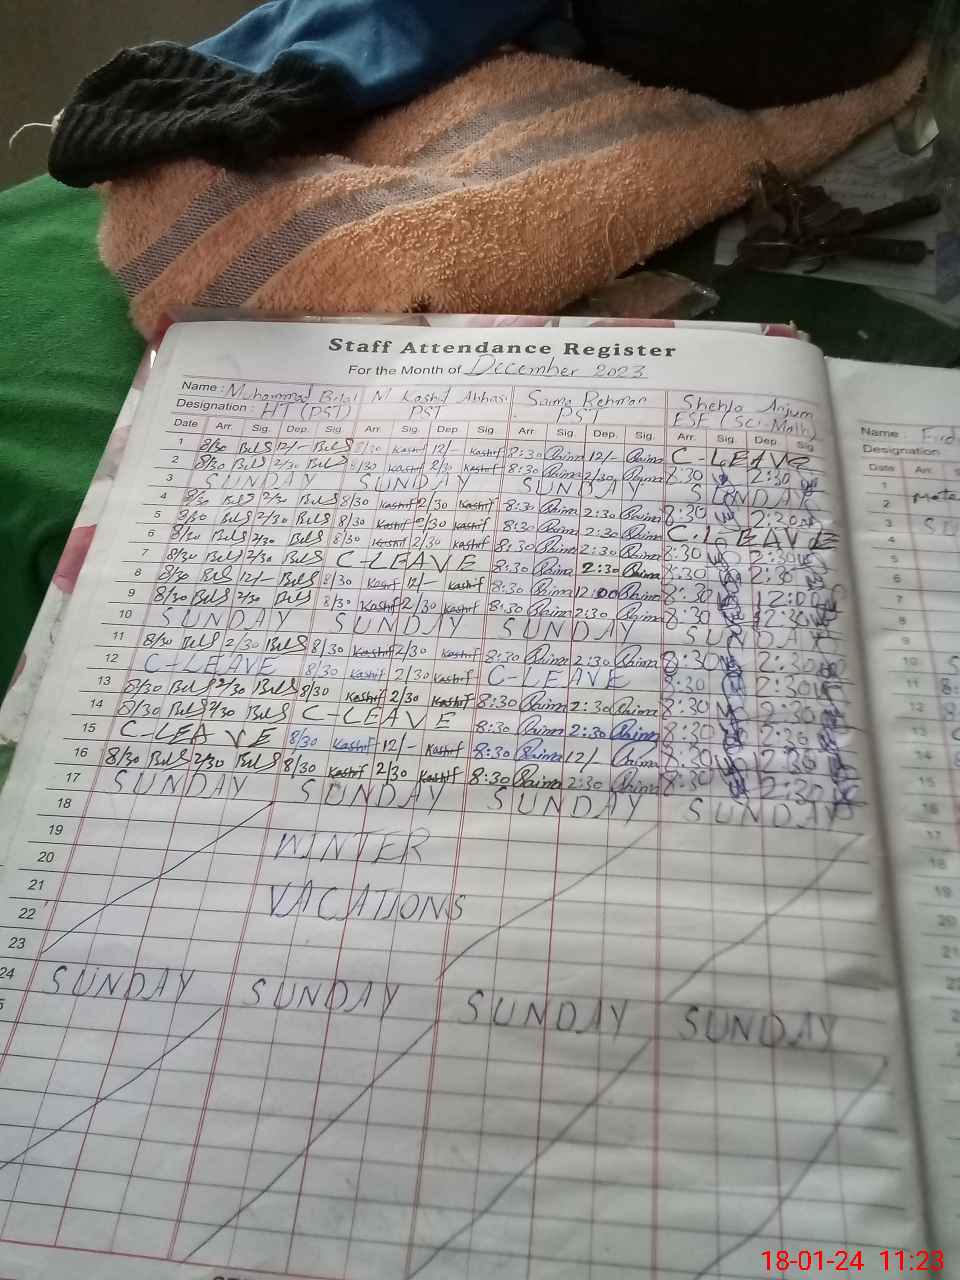 Staff Attendance Register
For the Month of December 2023
Name: Muhammad Bilal M Kashif Abbasi Saima Rehman Shehla Anjum
Designation: HT (PST) PST PST ESE (Sci-Math)
Date Arr. Sig. Dep. Sig. Arr. Sig. Dep. Sig Arr. Sig. Dep. Sig. Arr. Sig. Dep. Sig
1 8/30 12/- 8/30 Kashif 12/- Kashif 8:30 Saima 12/- Saima C-LEAVE
2 8/30 2/30 8/30 Kashif 2/30 Kashif 8:30 Saima 2/30 Saima 8:30 2:30
3 SUNDAY SUNDAY SUNDAY SUNDAY
4 8/30 2/30 8/30 Kashif 2/30 Kashif 8:30 Saima 2:30 Saima 8:30 2:20
5 8/30 2/30 8/30 Kashif 2/30 Kashif 8:30 Saima 2:30 Saima C.LEAVE
6 8/30 2/30 8/30 Kashif 2/30 Kashif 8:30 Saima 2:30 Saima 8:30 2:30
7 8/30 2/30 C-LEAVE 8:30 Saima 2:30 Saima 8:30 2:30
8 8/30 12/- 8/30 Kashif 12/- Kashif 8:30 Saima 12:00 Saima 8:30 12:00
9 8/30 2/30 8/30 Kashif 2/30 Kashif 8:30 Saima 2:30 Saima 8:30 2:30
10 SUNDAY SUNDAY SUNDAY SUNDAY
11 8/30 2/30 8/30 Kashif 2/30 Kashif 8:30 Saima 2:30 Saima 8:30 2:30
12 C-LEAVE 8/30 Kashif 2/30 Kashif C-LEAVE 8:30 2:30
13 8/30 2/30 8/30 Kashif 2/30 Kashif 8:30 Saima 2:30 Saima 8:30 2:30
14 8/30 2/30 C-LEAVE 8:30 Saima 2:30 Saima 8:30 2:30
15 C-LEAVE 8/30 Kashif 12/- Kashif 8:30 Saima 12/- Saima 8:30 2:30
16 8/30 2/30 8/30 Kashif 2/30 Kashif 8:30 Saima 2:30 Saima 8:30 2:30
17 SUNDAY SUNDAY SUNDAY SUNDAY
18
19 WINTER
20
21 VACATIONS
22
23
24 SUNDAY SUNDAY SUNDAY SUNDAY
Name:
Designation
Date Arr.
1
2
3
4
5
6
7
8
9
10
11
12
13
14
15
16
17
18
19
20
21
18-01-24 11:23